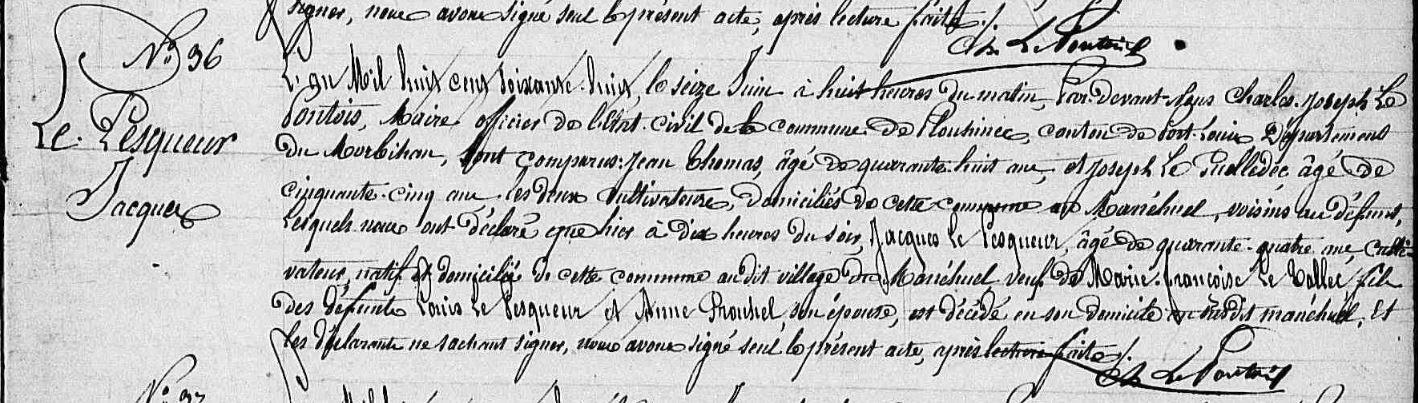 signer, nous avons signé seul le présent acte, après lecture faite./.
Ch Le Pontois
N° 36
Le Pesqueur
Jacques
L'an Mil huit cent soixante-huit, le seize Juin à huit heures du matin, Par-devant-Nous Charles-Joseph Le
Pontois, Maire officier de l'état-civil de la commune de Plouhinec, canton de Port-Louis Département
du Morbihan, sont comparus Jean Thomas, âgé de quarante-huit ans, et Joseph Le Guelledec âgé de
cinquante-cinq ans les deux Cultivateurs, domiciliés de cette commune au Manéhuel, voisins au défunt,
Lesquels nous ont déclaré que hier à dix heures du soir, Jacques Le Pesqueur, âgé de quarante-quatre ans, culti-
vateur, natif et domicilié de cette commune audit village du Manéhuel veuf de Marie-françoise Le Vallec fils
des défunts Louis Le Pesqueur et Anne son épouse, est décédé en son domicile audit manéhuel, Et
les déclarants ne sachant signer, nous avons signé seul le présent acte, après lecture faite./.
Ch Le Pontois
N° 37